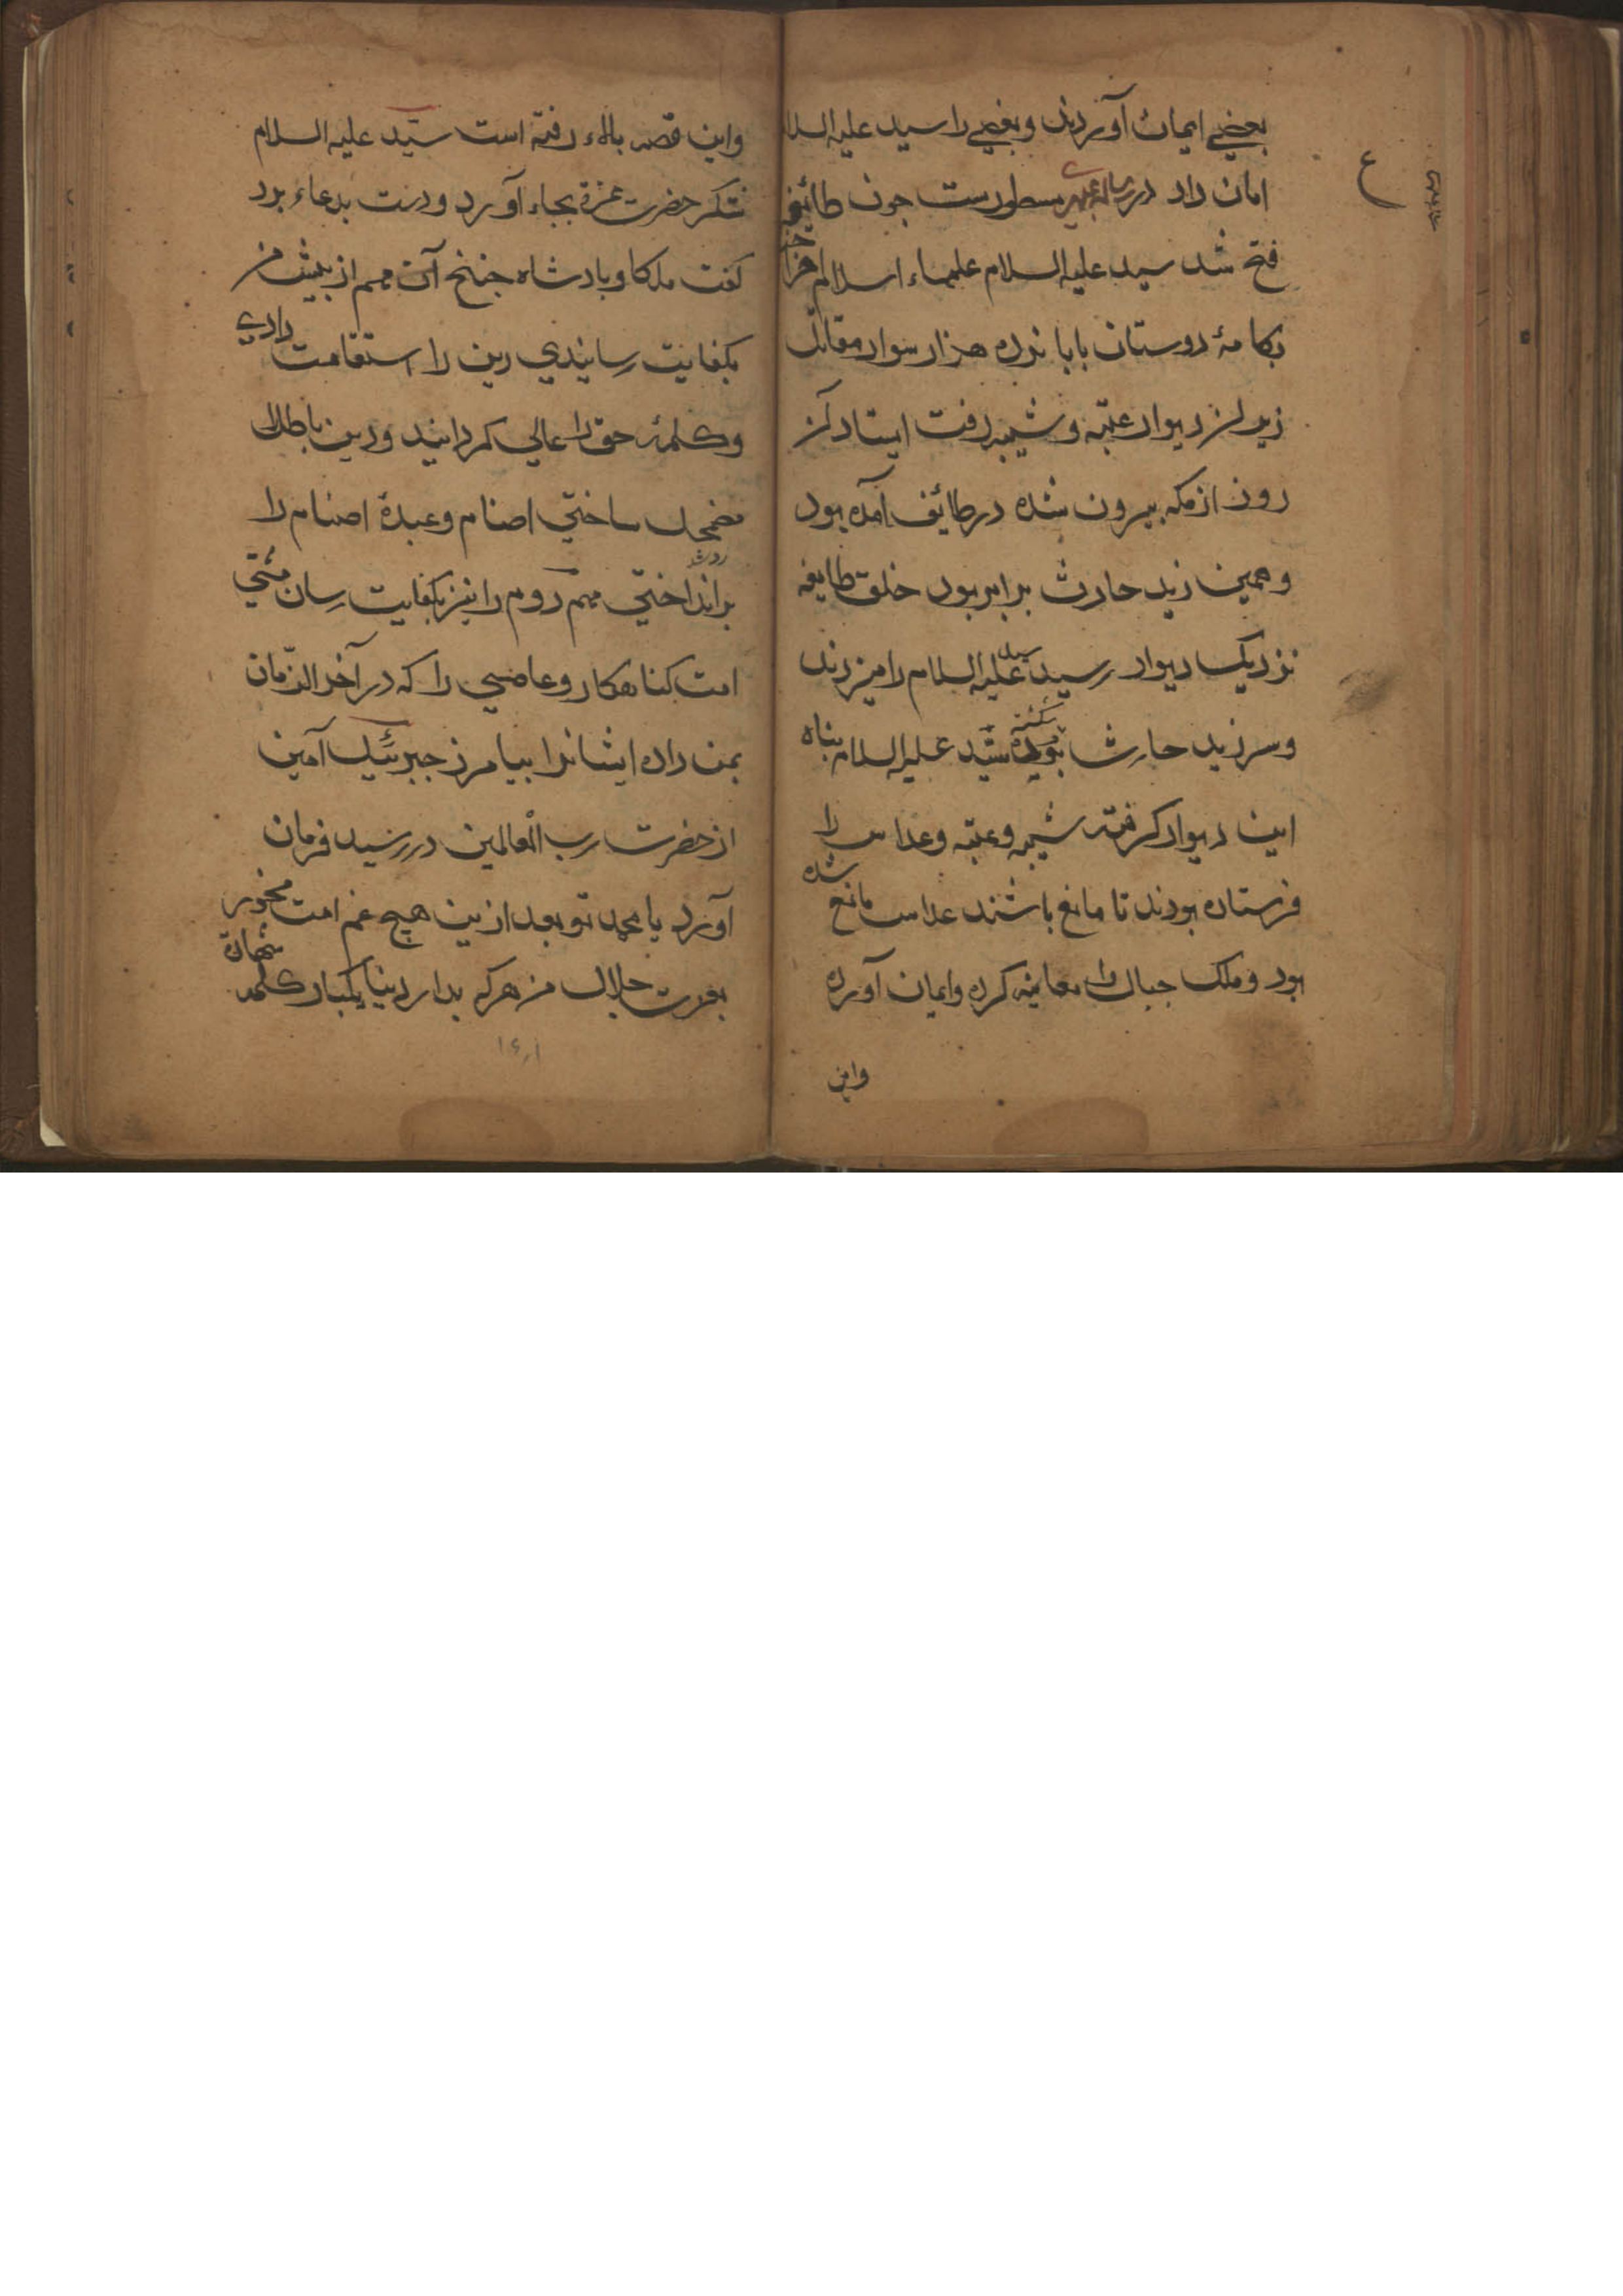 بعضي ايمان آوردند و بعضي را سيد عليه السلا
امان داد در مسطورست جون طائف
فتح شد سيد عليه السلام علماء اسلام
دوستان با پانزده هزار سوار مقاتل
زير ديوار عتبه و شيبه رفت ايستاد
روز از مكه بيرون شده در طائف آمده بود
و همين زيد حارث برابر بود خلق طايفه
نزديك ديوار رسيد سيد عليه السلام را ميزدند
و سر زيد حارث شكسته بود سيد عليه السلام پناه
اين ديوار كرفته شيبه و عتبه و عداس را
فرستاده بودند تا مانع باشند عداس مانع شده
بود و ملك جبال را معاينه كرده و ايمان آورده
واين
واين قصه بالاء رفته است سيّد عليه السلام
شكر حضرت عزة بجاء آورد و دست بدعاء برد
كفت ملكا و پادشاه جنانج آن مهم از پيش من
بكفايت رسانيدي دين را استقامت دادي
و كلمۀ حق را عالي كردانيد و دين باطل
مضمحل ساختي اصنام و عبدۀ اصنام را
برانداختي مهم روم را نيز بكفايت رسان مشتي
امت كناهكار و عاصي را كه در آخر الزّمان
بمن داده ايشانرا بيامرز جبرئيل آمين
از حضرت رب العالمين در رسيد فرمان
آورد يا محمد تو بعد ازين هيچ غم امت مخور
بعزت جلال من هركه بدار دنيا يكبار كلمه شهادة